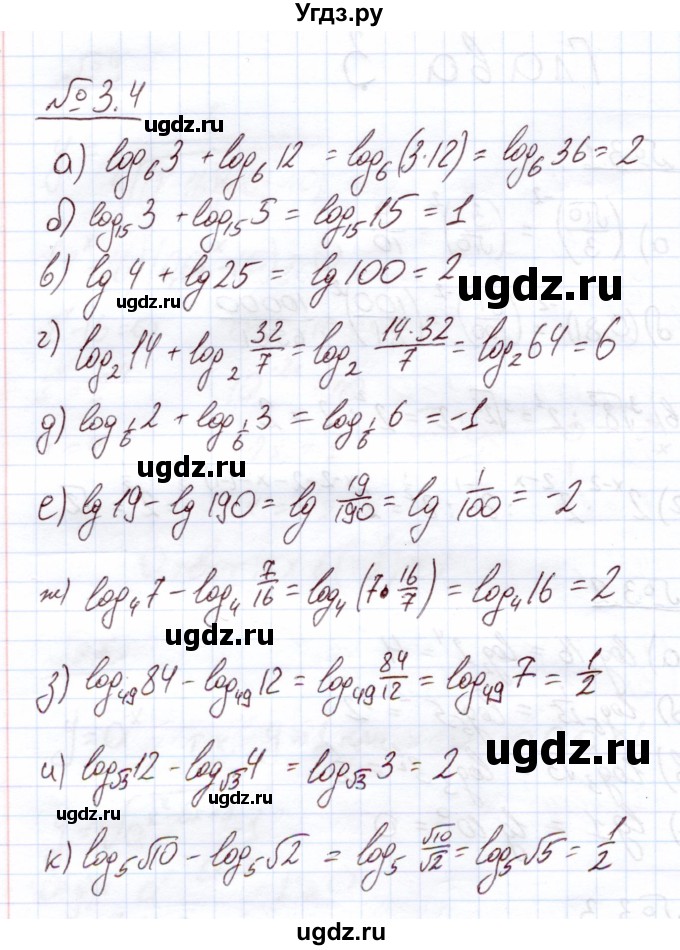 Угдз.ру
№ 3.4
ugdz.ru
ugdz.ru
а) log₆3 + log₆12 = log₆(3·12) = log₆36 = 2
б) log₁₅3 + log₁₅5 = log₁₅15 = 1
ugdz.ru
в) lg 4 + lg 25 = lg 100 = 2
ugdz.ru
ugdz.ru
г) log₂14 + log₂ 32/7 = log₂ (14·32)/7 = log₂64 = 6
д) log_(1/6) 2 + log_(1/6) 3 = log_(1/6) 6 = -1
ugdz.ru
е) lg 19 - lg 190 = lg 19/190 = lg 1/100 = -2
ж) log₄7 - log₄ 7/16 = log₄(7·16/7) = log₄16 = 2
ugdz.ru
з) log₄₉84 - log₄₉12 = log₄₉ 84/12 = log₄₉7 = 1/2
ugdz.ru
и) log_√3 12 - log_√3 4 = log_√3 3 = 2
ugdz.ru
ugdz.ru
к) log₅√10 - log₅√2 = log₅ √10/√2 = log₅√5 = 1/2
ugdz.ru
ugdz.ru